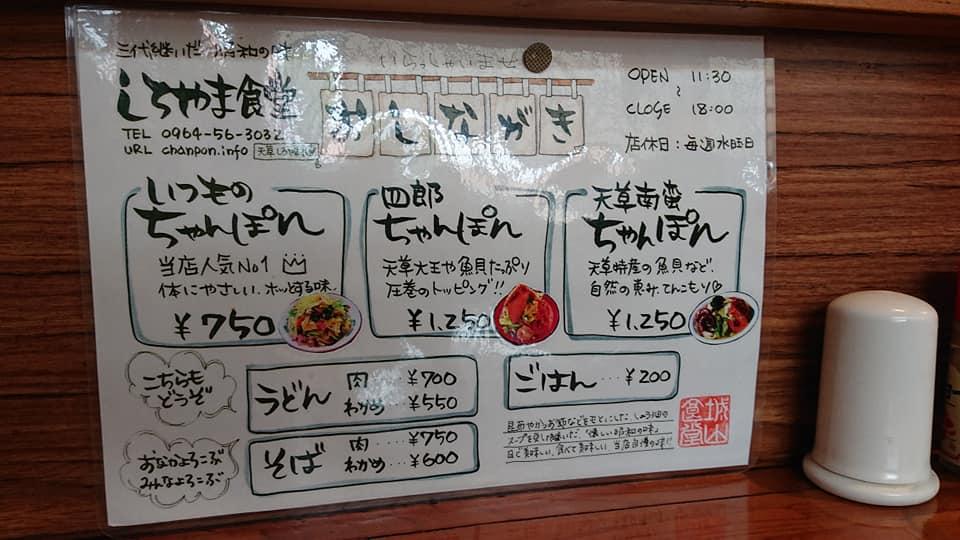 三代継いだ 昭和の味
しろやま食堂
TEL 0964-56-3032
URL chanpon.info
いらっしゃいませ
おしながき
OPEN 11:30
～
CLOGE 18:00
店休日：毎週水曜日
いつもの
ちゃんぽん
当店人気No1
体にやさしい、ホッとする味、
￥750
四郎
ちゃんぽん
天草大王や魚貝たっぷり
圧巻のトッピング!!
￥1,250
天草南蛮
ちゃんぽん
天草特産の魚貝など、
自然の恵み、てんこもり♡
￥1,250
こちらも
どうぞ
うどん 肉・・・￥700
わかめ・・・￥550
ごはん・・・￥200
おなかよろこぶ
みんなよろこぶ
そば 肉・・・￥750
わかめ・・・￥600
スープを受け継いだ、懐しい昭和の味。
目で美味しい、食べて美味しい、当店自慢の味!!
城山
食堂